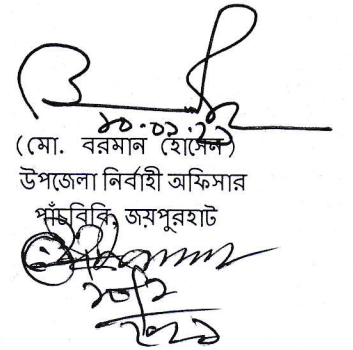 ১০.০২.২১
(মো. বরমান হোসেন)
উপজেলা নির্বাহী অফিসার
পাঁচবিবি, জয়পুরহাট